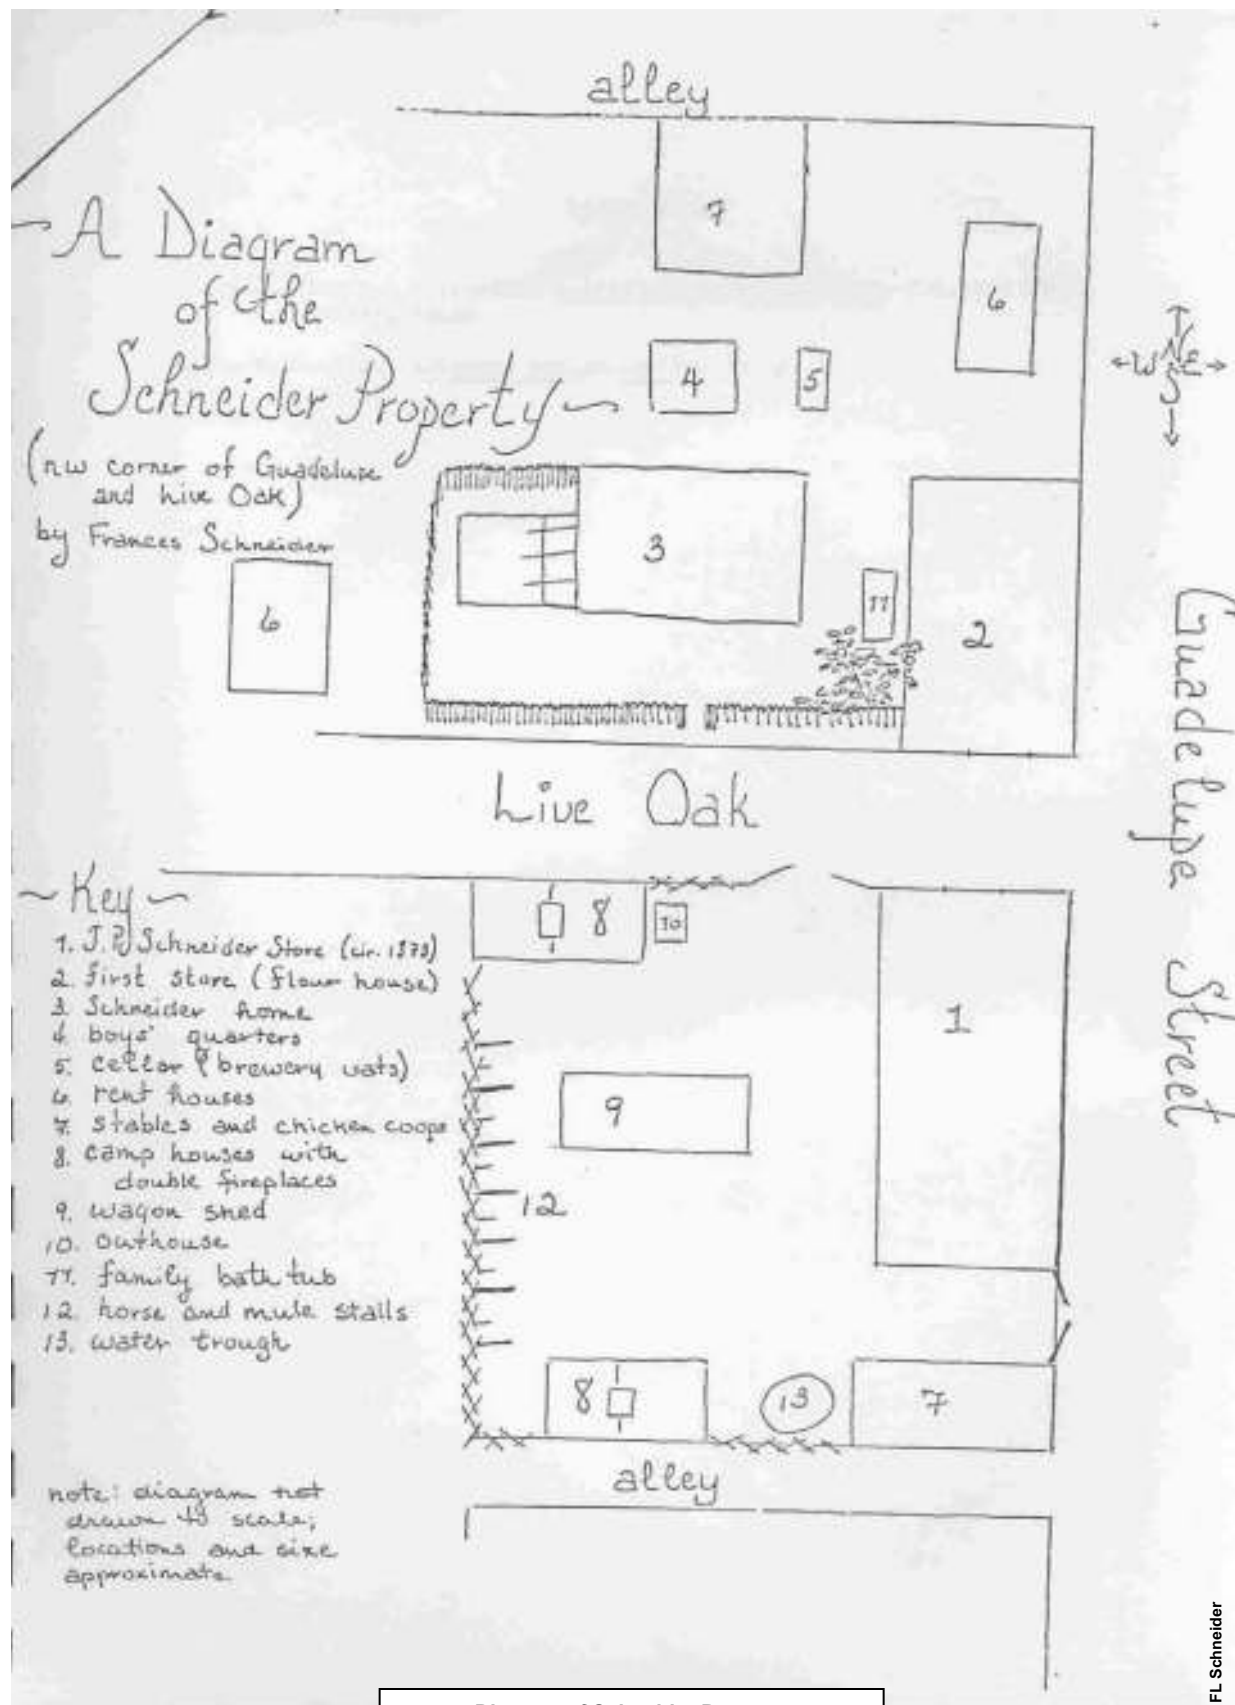 alley
~ A Diagram
of the
Schneider Property ~
(nw corner of Guadelupe
and Live Oak)
by Frances Schneider
7
6
4
5
N
W E
S
3
11
2
6
Guadelupe Street
Live Oak
~ Key ~
1. J.P. Schneider Store (cir. 1873)
2. first store (flour house)
3. Schneider home
4. boys' quarters
5. cellar (brewery vats)
6. rent houses
7. stables and chicken coops
8. camp houses with
double fireplaces
9. wagon shed
10. outhouse
11. family bath tub
12. horse and mule stalls
13. water trough
8
10
1
9
12
8
13
7
alley
note: diagram not
drawn to scale;
locations and size
approximate
FL Schneider